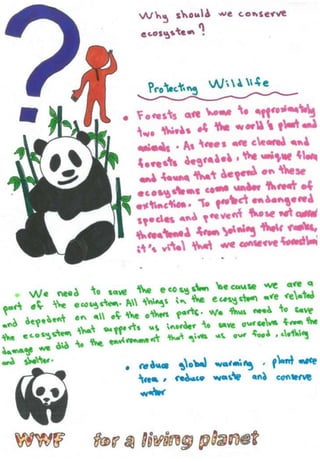 Why should we conserve
ecosystem ?
Protecting Wildlife
• Forests are home to approximately
two thirds of the world's plant and
animals. As trees are cleared and
forests degraded, the unique flora
and fauna that depend on these
ecosystems come under threat of
extinction. To protect endangered
species and prevent those not current
threatened from joining their ranks,
it's vital that we conserve forestland
• We need to save the ecosystem because we are a
part of the ecosystem. All things in the ecosystem are related
and depedent on all of the others parts. We thus need to save
the ecosystem that supports us inorder to save ourselves from the
damage we did to the environment that gives us our food, clothing
and shelter.
• reduce global warming, plant more
tree, reduce waste and conserve
water
WWF for a living planet